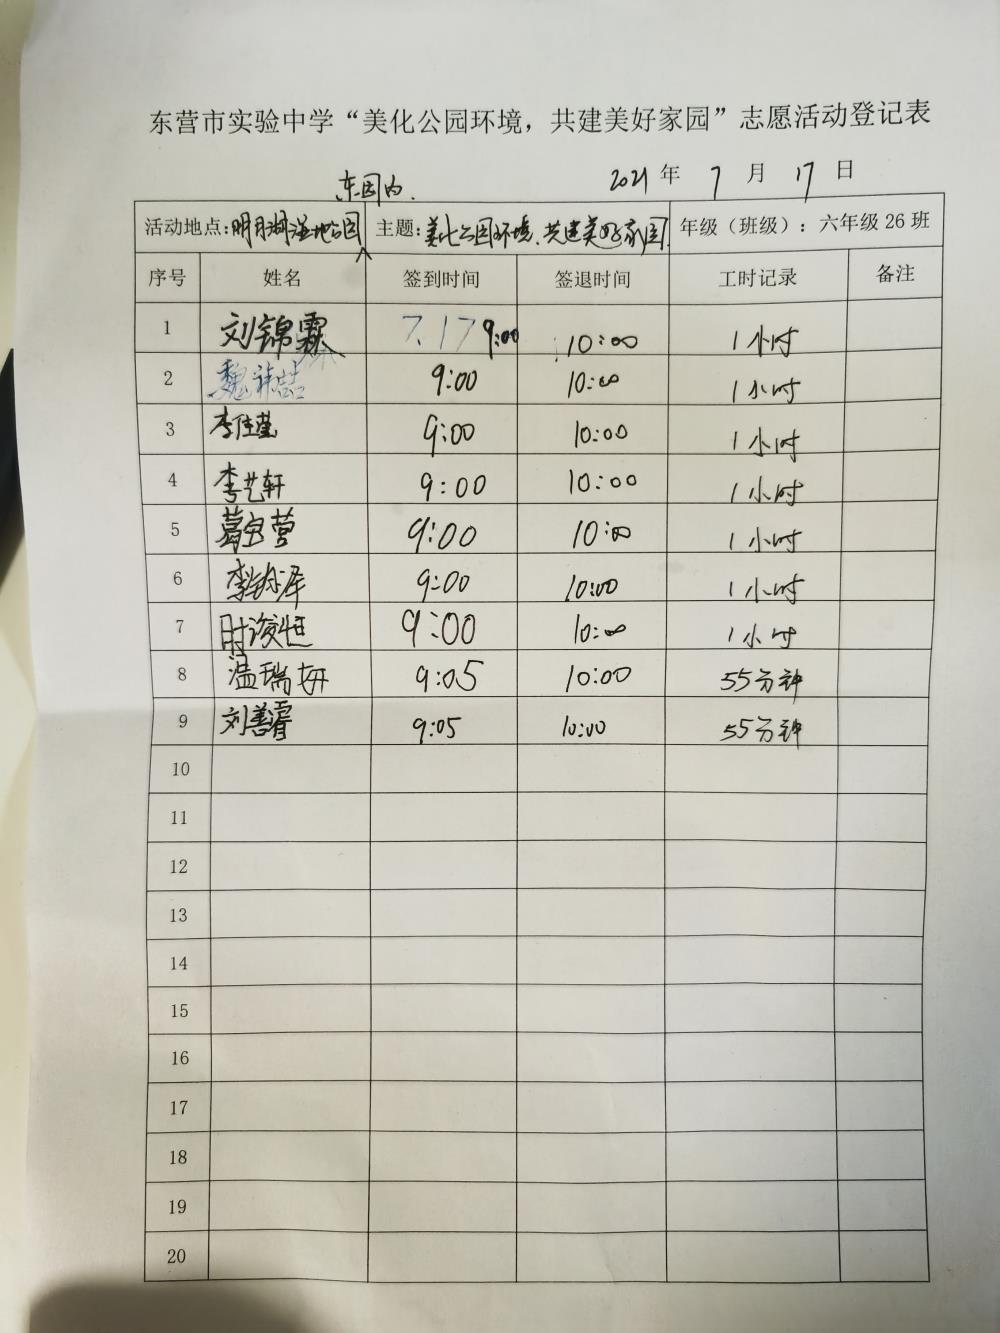 东营市实验中学“美化公园环境，共建美好家园”志愿活动登记表
2021 年 7 月 17 日
东园内.
活动地点：明月湖湿地公园 主题：美化公园环境、共建美好家园 年级（班级）：六年级26班
序号 姓名 签到时间 签退时间 工时记录 备注
1 刘锦霖 7.17 9:00 10:00 1小时
2 魏 喆 9:00 10:00 1小时
3 李佳莹 9:00 10:00 1小时
4 李艺轩 9:00 10:00 1小时
5 葛宝营 9:00 10:00 1小时
6 李 泽 9:00 10:00 1小时
7 时 恒 9:00 10:00 1小时
8 温瑞妍 9:05 10:00 55分钟
9 刘善睿 9:05 10:00 55分钟
10
11
12
13
14
15
16
17
18
19
20